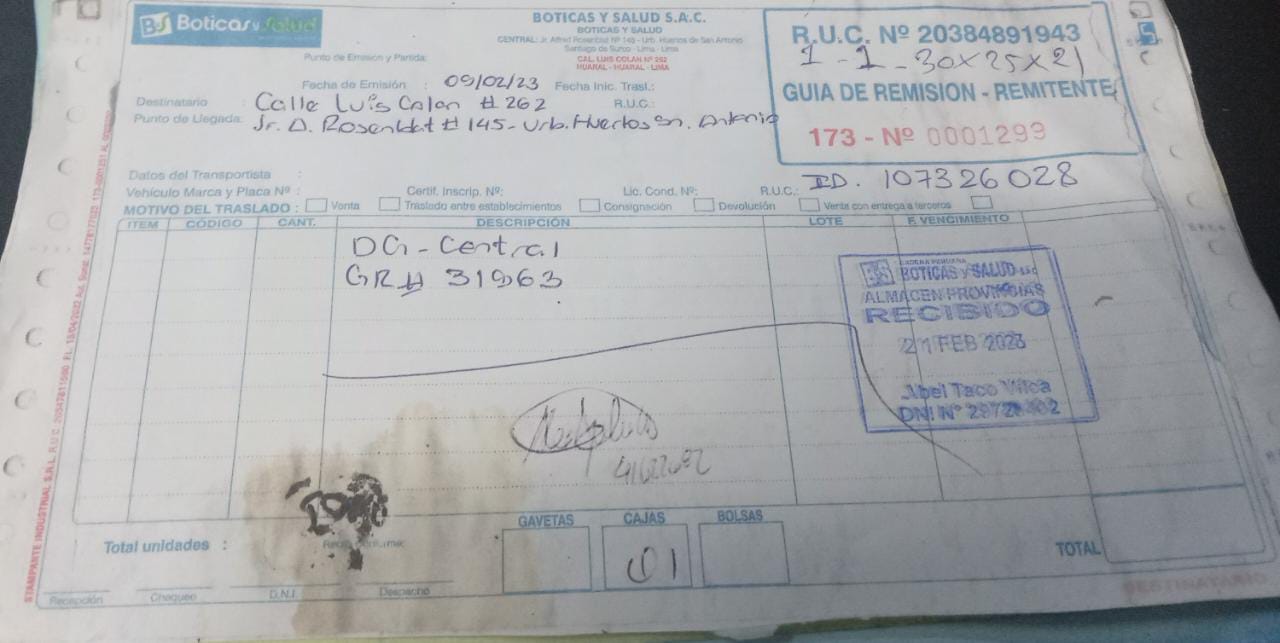 BS Boticas y Salud
BOTICAS Y SALUD S.A.C.
BOTICAS Y SALUD
CENTRAL: Jr. Alfred Rosenblat Nº 145 - Urb. Huertos de San Antonio
Santiago de Surco - Lima - Lima
Punto de Emisión y Partida:
CAL. LUIS COLAN Nº 262
HUARAL - HUARAL - LIMA
R.U.C. Nº 20384891943
1 - 1 - 30x25x21
GUIA DE REMISION - REMITENTE
173 - Nº 0001299
Fecha de Emisión : 09/02/23 Fecha Inic. Trasl.:
Destinatario : Calle Luis Colan # 262 R.U.C.:
Punto de Llegada: Jr. A. Rosenblat # 145 - Urb. Huertos Sn. Antonio
Datos del Transportista :
Vehículo Marca y Placa Nº : Certif. Inscrip. Nº: Lic. Cond. Nº: R.U.C.: ID. 107326028
MOTIVO DEL TRASLADO : Venta Traslado entre establecimientos Consignación Devolución Venta con entrega a terceros
ITEM CÓDIGO CANT. DESCRIPCIÓN LOTE F. VENCIMIENTO
DG - Central
GR # 31963
BS CADENA PERUANA
BOTICAS Y SALUD SAC
ALMACEN PROVINCIAS
RECIBIDO
21 FEB 2023
Abel Taco Vilca
DNI Nº
GAVETAS CAJAS BOLSAS
Total unidades : 01 TOTAL
Recepción Chequeo D.N.I. Despacho
DESTINATARIO
STAMPANTE INDUSTRIAL S.R.L.